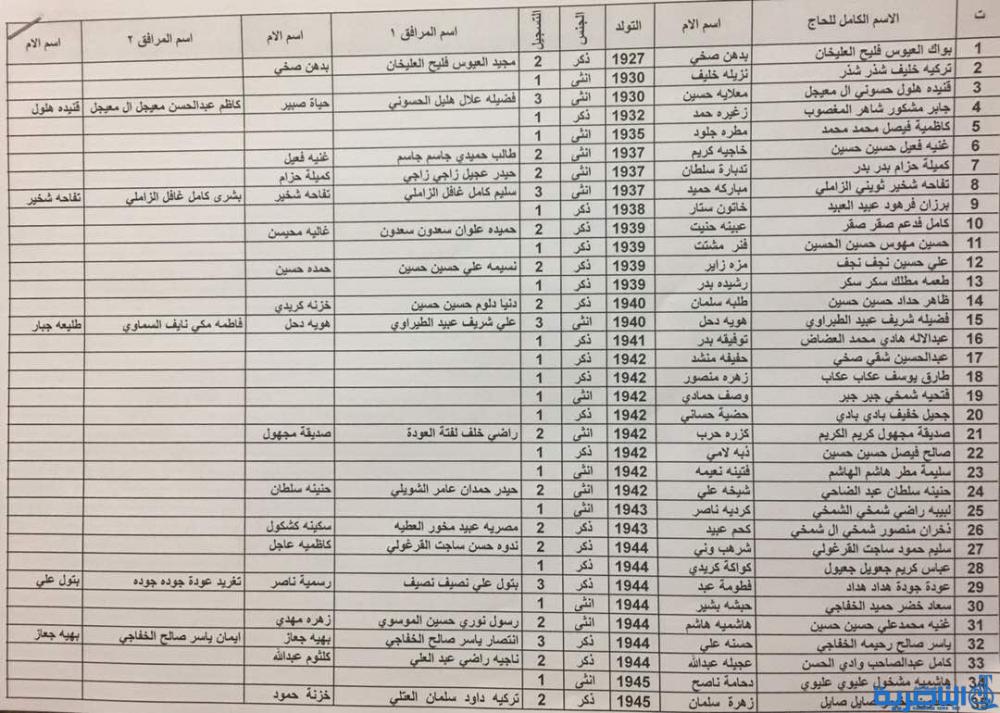 ت الاسم الكامل للحاج اسم الام التولد الجنس التسجيل اسم المرافق ١ اسم الام اسم المرافق ٢ اسم الام
1 بواك العيوس فليح العليخان بدهن صخي 1927 ذكر 2 مجيد العيوس فليح العليخان بدهن صخي
2 تركيه خليف شذر شذر نزيله خليف 1930 انثى 1
3 قنيده هلول حسوني ال معيجل معلايه حسين 1930 انثى 3 فضيله علال هليل الحسوني حياة صبير كاظم عبدالحسن معيجل ال معيجل قنيده هلول
4 جابر مشكور شاهر المغصوب زغيره حمد 1932 ذكر 1
5 كاظمية فيصل محمد محمد مطره جلود 1935 انثى 1
6 غنيه فعيل حسين حسين خاجيه كريم 1937 انثى 2 طالب حميدي جاسم جاسم غنيه فعيل
7 كميلة حزام بدر بدر تدبارة سلطان 1937 انثى 2 حيدر عجيل زاجي زاجي كميلة حزام
8 تفاحه شخير ثويني الزاملي مباركه حميد 1937 انثى 3 سليم كامل غافل الزاملي تفاحه شخير بشرى كامل غافل الزاملي تفاحه شخير
9 برزان فرهود عبيد العبيد خاتون ستار 1938 ذكر 1
10 كامل فدعم صقر صقر عبينه حنيت 1939 ذكر 2 حميده علوان سعدون سعدون غاليه محيسن
11 حسين مهوس حسين الحسين فنر مشتت 1939 ذكر 1
12 علي حسين نجف نجف مزه زاير 1939 ذكر 2 نسيمه علي حسين حسين حمده حسين
13 طعمه مطلك سكر سكر رشيده بدر 1939 ذكر 1
14 ظاهر حداد حسين حسين طلبه سلمان 1940 ذكر 2 دنيا دلوم حسين حسين خزنه كريدي
15 فضيله شريف عبيد الطيراوي هويه دحل 1940 انثى 3 علي شريف عبيد الطيراوي هويه دحل فاطمه مكي نايف السماوي طليعه جبار
16 عبدالاله هادي محمد العضاض توفيقه بدر 1941 ذكر 1
17 عبدالحسين شقي صخي حفيفه منشد 1942 ذكر 1
18 طارق يوسف عكاب عكاب زهره منصور 1942 ذكر 1
19 فتحيه شمخي جبر جبر وصف حمادي 1942 انثى 1
20 جحيل خفيف بادي بادي حضية حساني 1942 ذكر 1
21 صديقة مجهول كريم الكريم كزره حرب 1942 انثى 2 راضي خلف لفتة العودة صديقة مجهول
22 صالح فيصل حسين حسين ذبه لامي 1942 ذكر 1
23 سليمة مطر هاشم الهاشم فتينه نعيمه 1942 انثى 1
24 حنينه سلطان عبد الضاحي شيخه علي 1942 انثى 2 حيدر حمدان عامر الشويلي حنينه سلطان
25 لبيبه راضي شمخي الشمخي كرديه ناصر 1943 انثى 1
26 ذخران منصور شمخي ال شمخي كحم عبيد 1943 ذكر 2 مصريه عبيد مخور العطيه سكينه كشكول
27 سليم حمود ساجت القرغولي شرهب وني 1944 ذكر 2 ندوه حسن ساجت القرغولي كاظميه عاجل
28 عباس كريم جعويل جعيول كواكة كريدي 1944 ذكر 1
29 عودة جودة هداد هداد فطومة عبد 1944 ذكر 3 بتول علي نصيف نصيف رسمية ناصر تغريد عودة جوده جوده بتول علي
30 سعاد خضر حميد الخفاجي حبشه بشير 1944 انثى 1
31 غنيه محمدعلي حسين حسين هاشميه هاشم 1944 انثى 2 رسول نوري حسين الموسوي زهره مهدي
32 ياسر صالح رحيمه الخفاجي حسنه علي 1944 ذكر 3 انتصار ياسر صالح الخفاجي بهيه جعاز ايمان ياسر صالح الخفاجي بهيه جعاز
33 كامل عبدالصاحب وادي الحسن عجيله عبدالله 1944 ذكر 2 ناجيه راضي عبد العلي كلثوم عبدالله
34 هاشميه مشخول عليوي عليوي دحامة ناصح 1945 انثى 1
35 صايل صايل زهرة سلمان 1945 ذكر 2 تركيه داود سلمان العتلي خزنة حمود
الناصرية